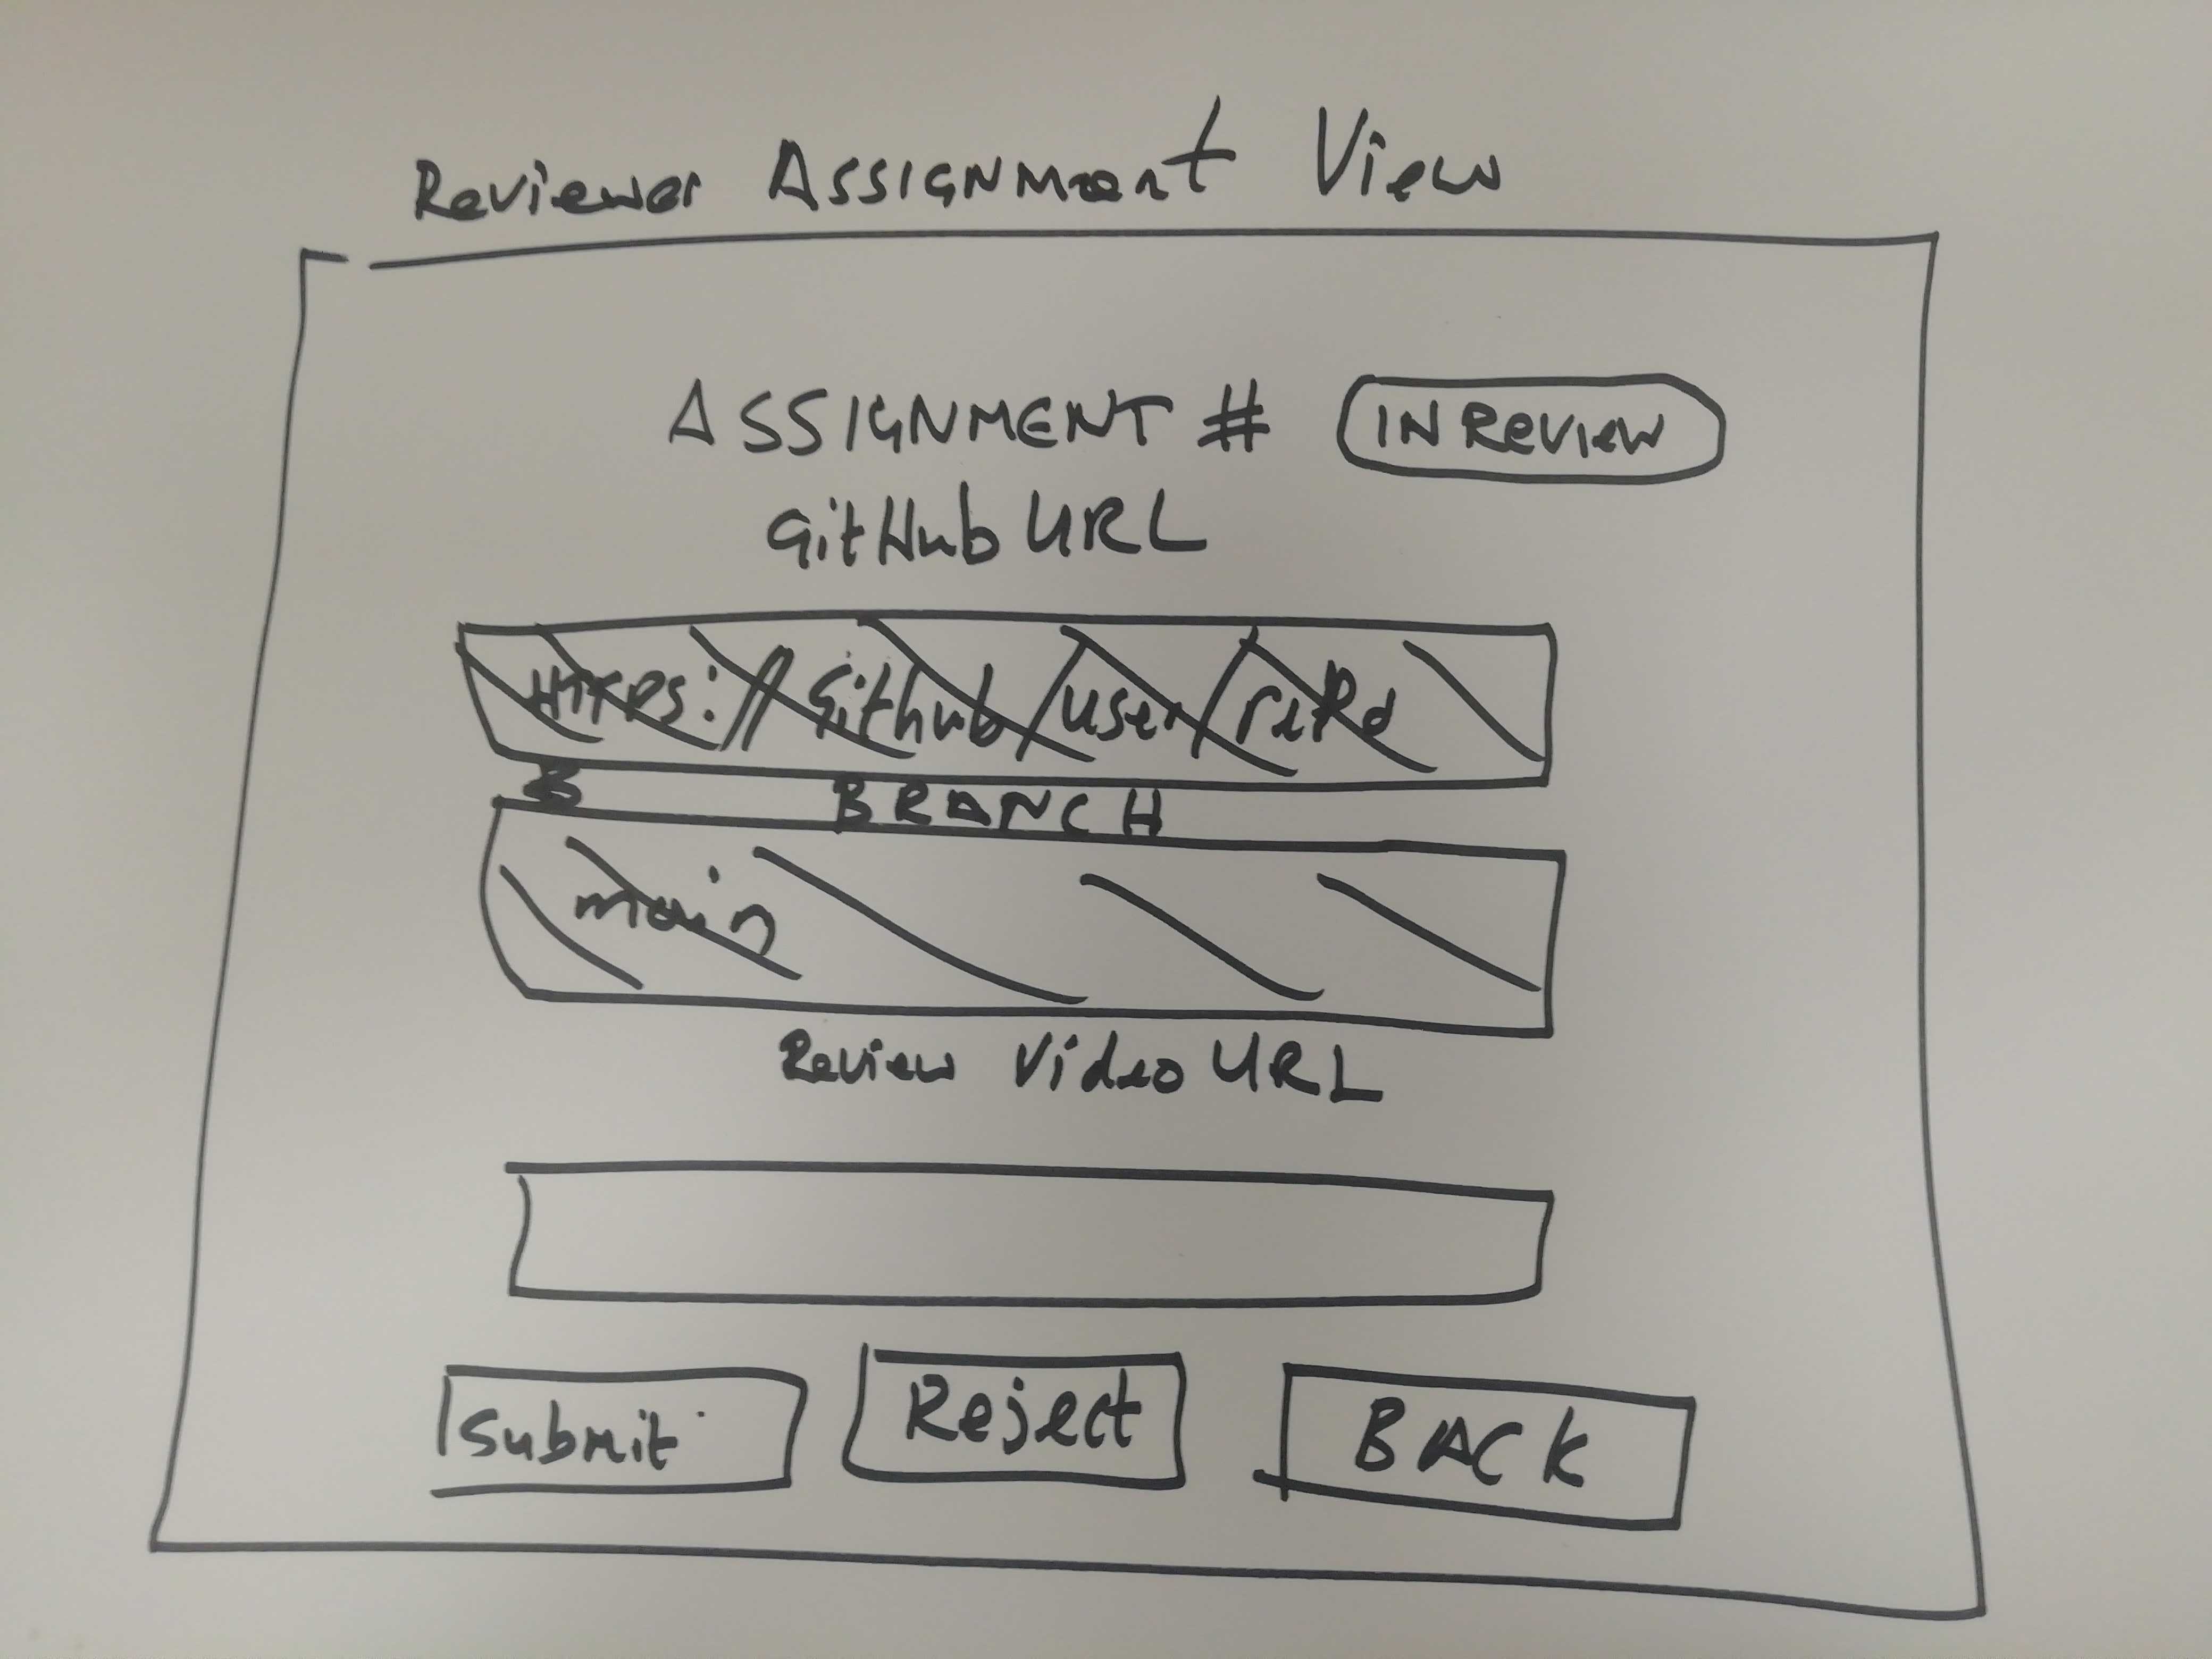 Reviewer Assignment View
ASSIGNMENT # IN Review
GitHub URL
HTTPS://Github/user/
BRANCH
main
Review Video URL
Submit Reject BACK